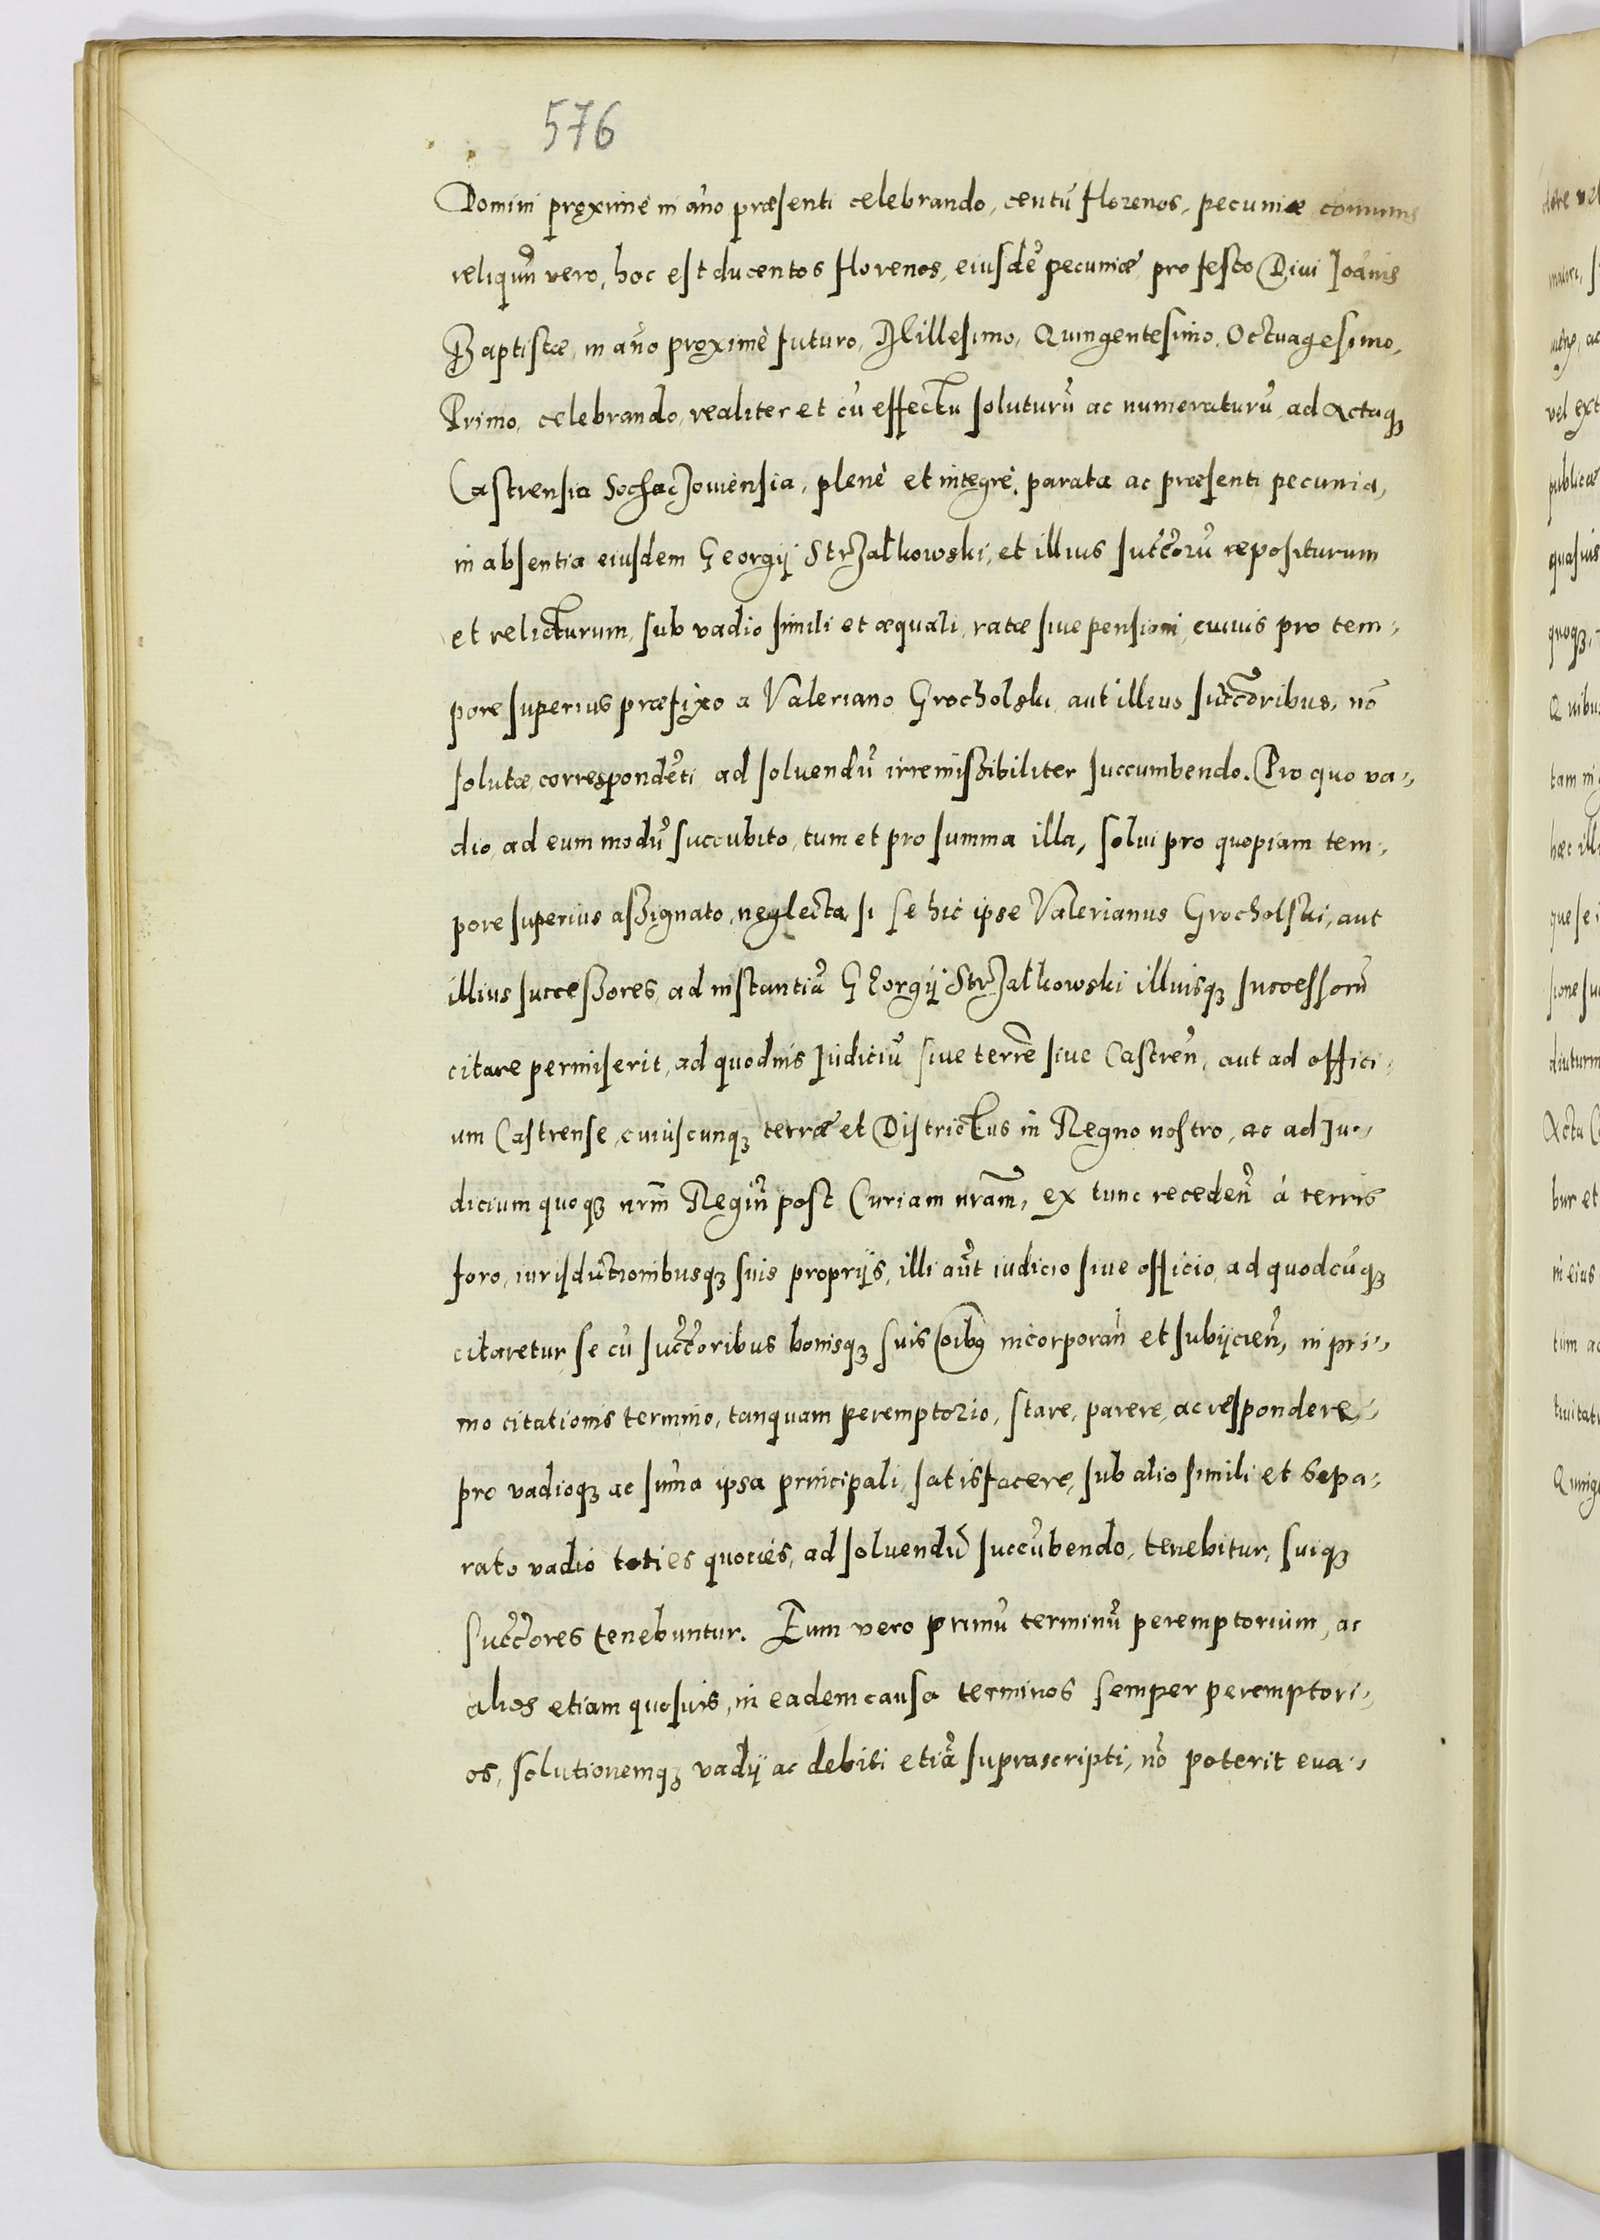 576
Domini proxime in año præsenti celebrando, centũ florenos, pecuniæ cõmunis
reliqũn vero, hoc est ducentos florenos, eiusdẽ pecuniæ pro festo Diui Ioãnis
Baptistæ, in año proximè futuro, Millesimo, Quingentesimo, Octuagesimo,
Primo, celebrando, realiter et cũ effectu soluturũ ac numeraturũ, ad Actaqȝ
Castrensia Sochaczouiensia, plenè et integrè, parata ac præsenti pecunia,
in absentia eiusdem Georgij Strzalkowski, et illius succ̃orũ repositurum
et relicturum, sub vadio simili et æquali, ratæ siue pensioni, cuiuis pro tem-
pore superius præfixo a Valeriano Grocholski aut illius succ̃oribus, nõ
solutæ, correspondẽti, ad soluendũ irremissibiliter succumbendo. Pro quo va-
dio, ad eum modũ succubito, tum et pro summa illa, solui pro quopiam tem-
pore superius assignato, neglecta, si se hic ipse Valerianus Grocholski, aut
illius successores, ad instantiã GEorgij Strzalkowski illiusqȝ successorũ
citare permiserit, ad quoduis Iudiciũ siue terrẽ siue Castreñ, aut ad offici-
um Castrense, cuiuscunqȝ terræ et Districtus in Regno nostro, ac ad Ju-
dicium quoqȝ nrm̃ Regiũ post Curiam nram̃, ex tunc recedeñ à terris
foro, iurisductionibusqȝ suis proprijs, illi aũt iudicio siue officio, ad quodcũqȝ
citaretur, se cũ succ̃oribus bonisqȝ suis oĩbꝰ incorporañ et subijcieñ, in pri-
mo citationis termino, tanquam peremptorio, stare, parere, ac respondere,
pro vadioqȝ ac sũma ipsa principali, satisfacere, sub alio simili et sepa-
rato vadio toties quoties, ad soluendũ succũbendo, tenebitur, suiqȝ
succ̃ores tenebuntur. Eum vero primũ terminũ peremptorium, ac
alios etiam quosuis, in eadem causa terminos semper peremptori-
os, solutionemqȝ vadij ac debiti etiã suprascripti, nõ poterit eua-